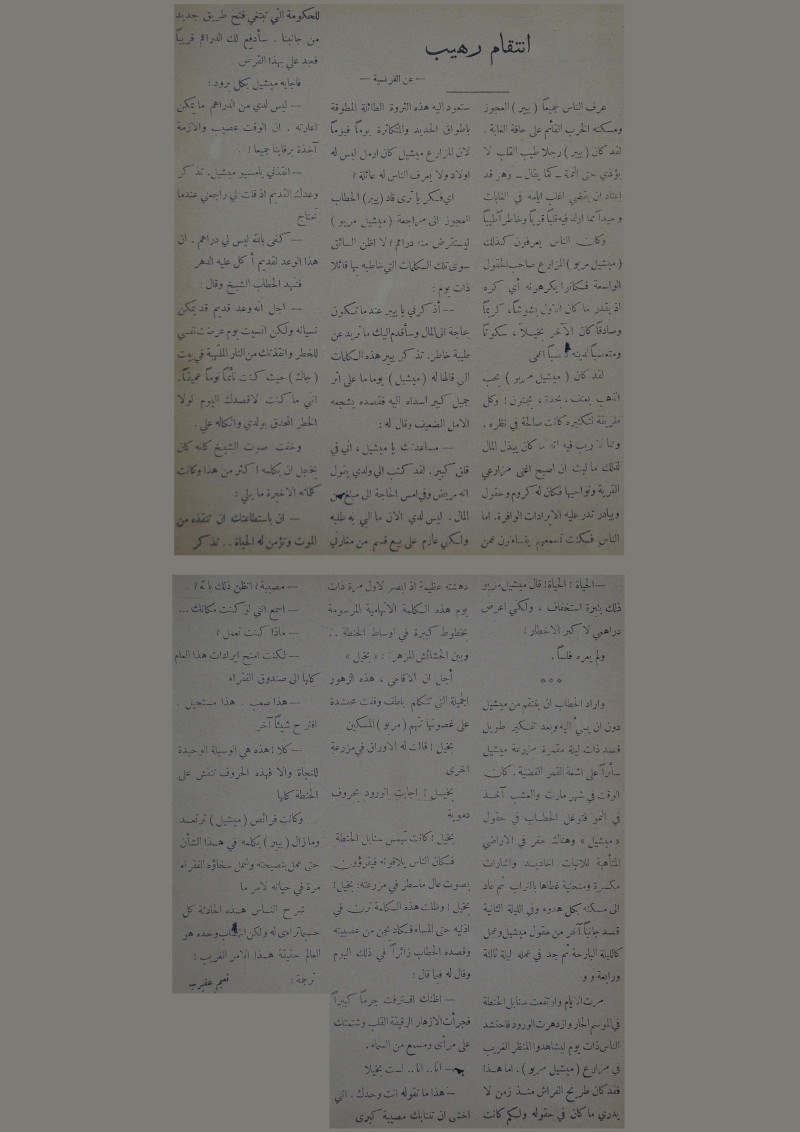 انتقام رهيب
— عن الفرنسية —
عرف الناس جميعاً ( بيير ) العجوز
ومسكنه الخرب القائم على حافة الغابة .
لقد كان ( بيير ) رجلا طيب القلب لا
يؤذي حتى النملة ـ كما يقال ـ وهو قد
اعتاد ان يقضي اغلب ايامه في الغابات
وحيداً مما اولد فيه قلباً قوياً وخاطراً طيباً
وكان الناس يعرفون كذلك
( ميشيل مريو ) المزارع صاحب الحقول
الواسعة فكانوا يكرهونه أي كره
اذ بقدر ما كان الاول بشوشاً ، كريماً
وصادقاً كان الآخر بخيلاً ، سكوتاً
ومتعصباً لدينه
لقد كان ( ميشيل مريو ) يحب
الذهب بعنف ، بحدة ، بجنون ! وكل
طريقة لتكثيره كانت صالحة في نظره .
ومما لا ريب فيه انه ما كان يبذل المال
لذلك ما لبث ان اصبح اغنى مزارعي
القرية ونواحيها فكان له كروم وحقول
وبيادر تدر عليه الايرادات الوافرة . اما
الناس فكنت تسمعهم يتساءلون عمن
ستعود اليه هذه الثروة الطائلة المطوقة
باطواق الحديد والمتكاثرة يوماً فيوماً
لان المزارع ميشيل كان ارمل ليس له
اولاد ولا يعرف الناس له عائلة !
اي فكر يا ترى قاد ( بيير ) الحطاب
العجوز الى مراجعة ( ميشيل مريو )
ليستقرض منه دراهم ؟ لا اظن السائق
سوى تلك الكلمات التي خاطبه بها قائلا
ذات يوم :
— أذكرني يا بيير عندما تكون
بحاجة الى المال وسأقدم اليك ما تريد عن
طيبة خاطر . تذكر بيير هذه الكلمات
التي قالها له ( ميشيل ) يوما ما على اثر
جميل كبير اسداه اليه فقصده يشجعه
الامل الضعيف وقال له :
— مساعدتك يا ميشيل ، اني في
قلق كبير . لقد كتب الي ولدي يقول
انه مريض وفي امس الحاجة الى مبلغ من
المال . ليس لدي الان ما البي به طلبه
ولكني عازم على بيع قسم من مغارتي
للحكومة التي تبتغي فتح طريق جديد
من جانبنا . سأدفع لك الدراهم قريباً
فجد علي بهذا القرض
فاجابه ميشيل بكل برود :
— ليس لدي من الدراهم ما يمكن
اعارته . ان الوقت عصيب والازمة
آخذة برقابنا جميعاً ! .
— انقذني يا مسيو ميشيل . تذكر
وعدك القديم اذ قلت لي راجعني عندما
تحتاج
— كفى بالله ليس لي دراهم . ان
هذا الوعد لقديم أكل عليه الدهر
فتنهد الحطاب الشيخ وقال :
— اجل انه وعد قديم قد يمكن
نسيانه ولكن انسيت يوم عرضت نفسي
للخطر وانقذتك من النار الملتهبة في بيت
( جاك ) حيث كنت نائماً نوماً عميقاً .
اني ما كنت لاقصدك اليوم لولا
الخطر المحدق بولدي واتكاله علي .
وخفت صوت الشيخ كانه كان
يخجل ان يكلمه اكثر من هذا وكانت
كلماته الاخيرة ما يلي :
— ان باستطاعتك ان تنقذه من
الموت وتؤمن له الحياة . . تذكر
— الحياة ! الحياة ! قال ميشيل مريو
ذلك بنبرة استخفاف ، ولكني اعرض
دراهمي لاكبر الاخطار !
ولم يعره فلساً .
○ ○ ○
واراد الحطاب ان ينتقم من ميشيل
دون ان يسيء اليه وبعد تفكير طويل
قصد ذات ليلة مقمرة مزرعة ميشيل
سائراً على اشعة القمر الفضية . كان
الوقت في شهر مارت والعشب آخذ
في النمو فتوغل الحطاب في حقول
« ميشيل » وهناك حفر في الاراضي
المتأهبة للانبات اخاديد واشارات
مكسرة ومنحنية غطاها بالتراب ثم عاد
الى مسكنه بكل هدوء وفي الليلة الثانية
قصد جانباً آخر من حقول ميشيل وعمل
كالليلة البارحة ثم جد في عمله ليلة ثالثة
ورابعة و و
مرت الايام وارتفعت سنابل الحنطة
في الموسم الحار وازدهرت الورود فاحتشد
الناس ذات يوم ليشاهدوا المنظر الغريب
في مزارع ( ميشيل مريو ) . اما هذا
فقد كان طريح الفراش منذ زمن لا
يدري ما كان في حقوله ولكم كانت
دهشته عظيمة اذ ابصر لاول مرة ذات
يوم هذه الكلمة الاتهامية المرسومة
بخطوط كبيرة في اوساط الحنطة . .
وبين الحشائش المزهرة : « بخيل »
أجل ان الاقاحي ، هذه الزهور
الجميلة التي تتكلم بلطف وقفت محتشدة
على غصونها تتهم ( مريو ) المسكين
بخيل ! قالت له الاوراق في مزرعة
اخرى
بخيل ! اجابت الورود بحروف
دموية
بخيل ! كانت تهمس سنابل الحنطة
فكان الناس يلاقونه فيقرؤون
بصوت عال ما سطر في مزرعته : بخيل !
بخيل ! وظلت هذه الكلمة ترن في
اذنيه حتى المساء فكاد يجن من عصبيته
وقصده الحطاب زائراً في ذلك اليوم
وقال له فيما قال :
— اظنك اقترفت جرماً كبيراً
فجرأت الازهار الرقيقة القلب وشتمتك
على مرأى ومسمع من السماء .
— انا . . انا . . لست بخيلا
— هذا ما تقوله انت وحدك . اني
اخشى ان تنتابك مصيبة كبرى
— مصيبة ؟ اتظن ذلك يا ته ؟
— اسمع انني لو كنت مكانك ...
— ماذا كنت تعمل ؟
— لكنت امنح ايرادات هذا العام
كلها الى صندوق الفقراء
— هذا صعب . هذا مستحيل .
اقترح شيئاً آخر
— كلا ! هذه هي الوسيلة الوحيدة
للنجاة والا فهذه الحروف تنقش على
الحنطة كلها
وكانت فرائص ( ميشيل ) ترتعد
وما زال ( بيير ) يكلمه في هذا الشأن
حتى عمل بنصيحته وشمل سخاؤه الفقراء
مرة في حياته لامر ما
شرح الناس هذه الحادثة كل
حسبما تراءى له ولكن الحطاب وحده هو
العالم حقيقة هذا الامر الغريب !
ترجمة : نعيم عقيرب